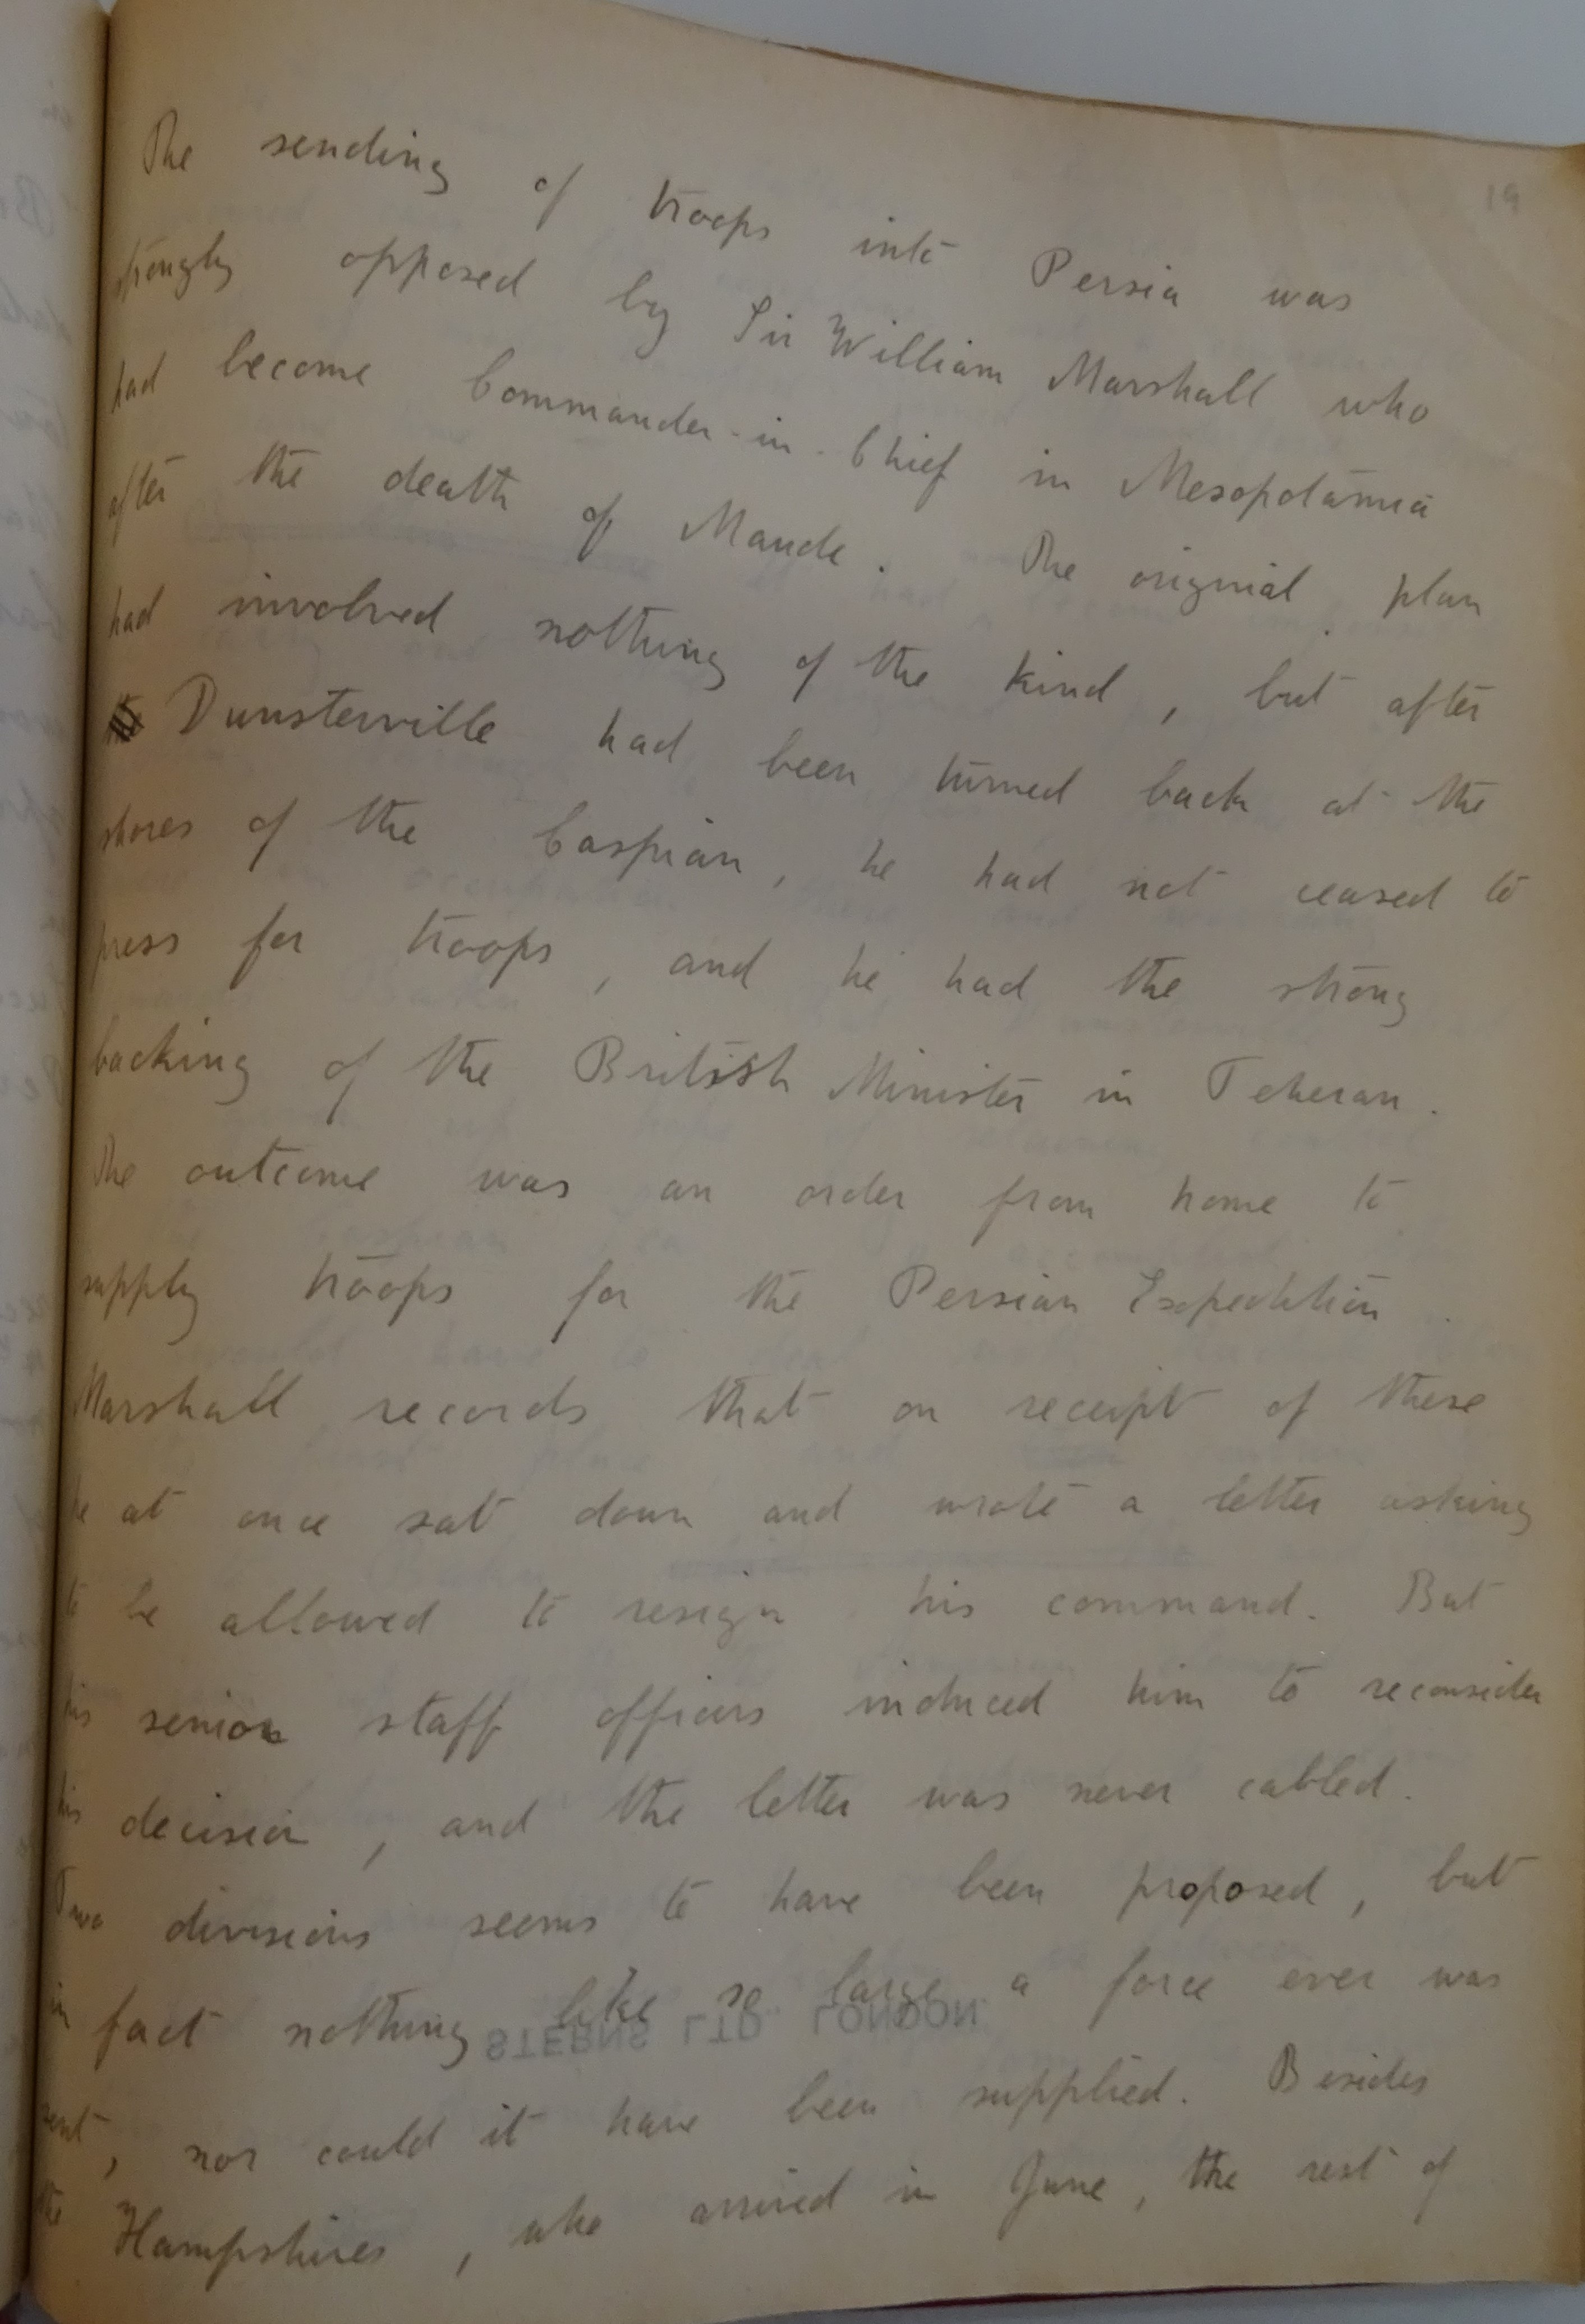 19
The sending of troops into Persia was
strongly opposed by Sir William Marshall who
had become Commander-in-Chief in Mesopotamia
after the death of Maude. The original plan
had involved nothing of the kind, but after
Dunsterville had been turned back at the
shores of the Caspian, he had not ceased to
press for troops, and he had the strong
backing of the British Minister in Teheran.
The outcome was an order from home to
supply troops for the Persian Expedition.
Marshall records that on receipt of these
he at once sat down and wrote a letter asking
to be allowed to resign his command. But
his senior staff officers induced him to reconsider
his decision, and the letter was never cabled.
Two divisions seems to have been proposed, but
in fact nothing like so large a force ever was
STERNS LTD LONDON
sent, nor could it have been supplied. Besides
the Hampshires, who arrived in June, the rest of